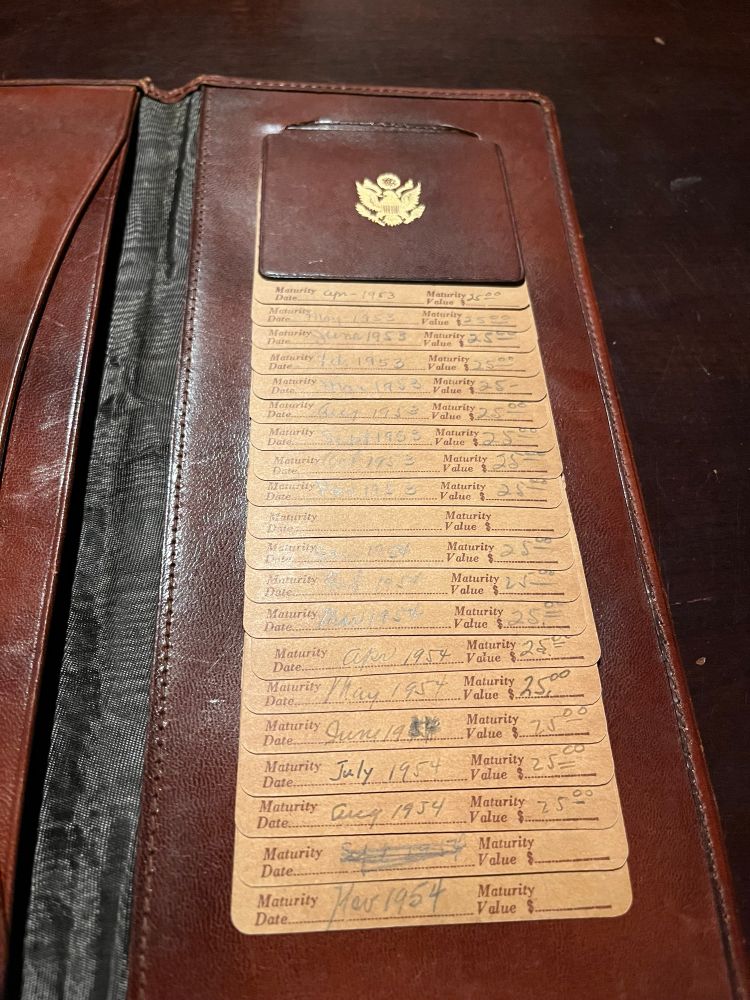 Maturity Date apr - 1953 Maturity Value $ 25 00
Maturity Date May - 1953 Maturity Value $ 25 00
Maturity Date June 1953 Maturity Value $ 25 00
Maturity Date 1953 Maturity Value $ 25 00
Maturity Date 1953 Maturity Value $ 25 -
Maturity Date Aug 1953 Maturity Value $ 25 00
Maturity Date Sept 1953 Maturity Value $ 25
Maturity Date Oct 1953 Maturity Value $ 25
Maturity Date 1953 Maturity Value $ 25
Maturity Date Maturity Value $
Maturity Date 1954 Maturity Value $ 25
Maturity Date 1954 Maturity Value $ 25
Maturity Date Mar 1954 Maturity Value $ 25
Maturity Date Apr 1954 Maturity Value $ 25.00
Maturity Date May 1954 Maturity Value $ 25.00
Maturity Date June 1954 Maturity Value $ 25 00
Maturity Date July 1954 Maturity Value $ 25 00
Maturity Date Aug 1954 Maturity Value $ 25 00
Maturity Date Maturity Value $
Maturity Date Nov 1954 Maturity Value $